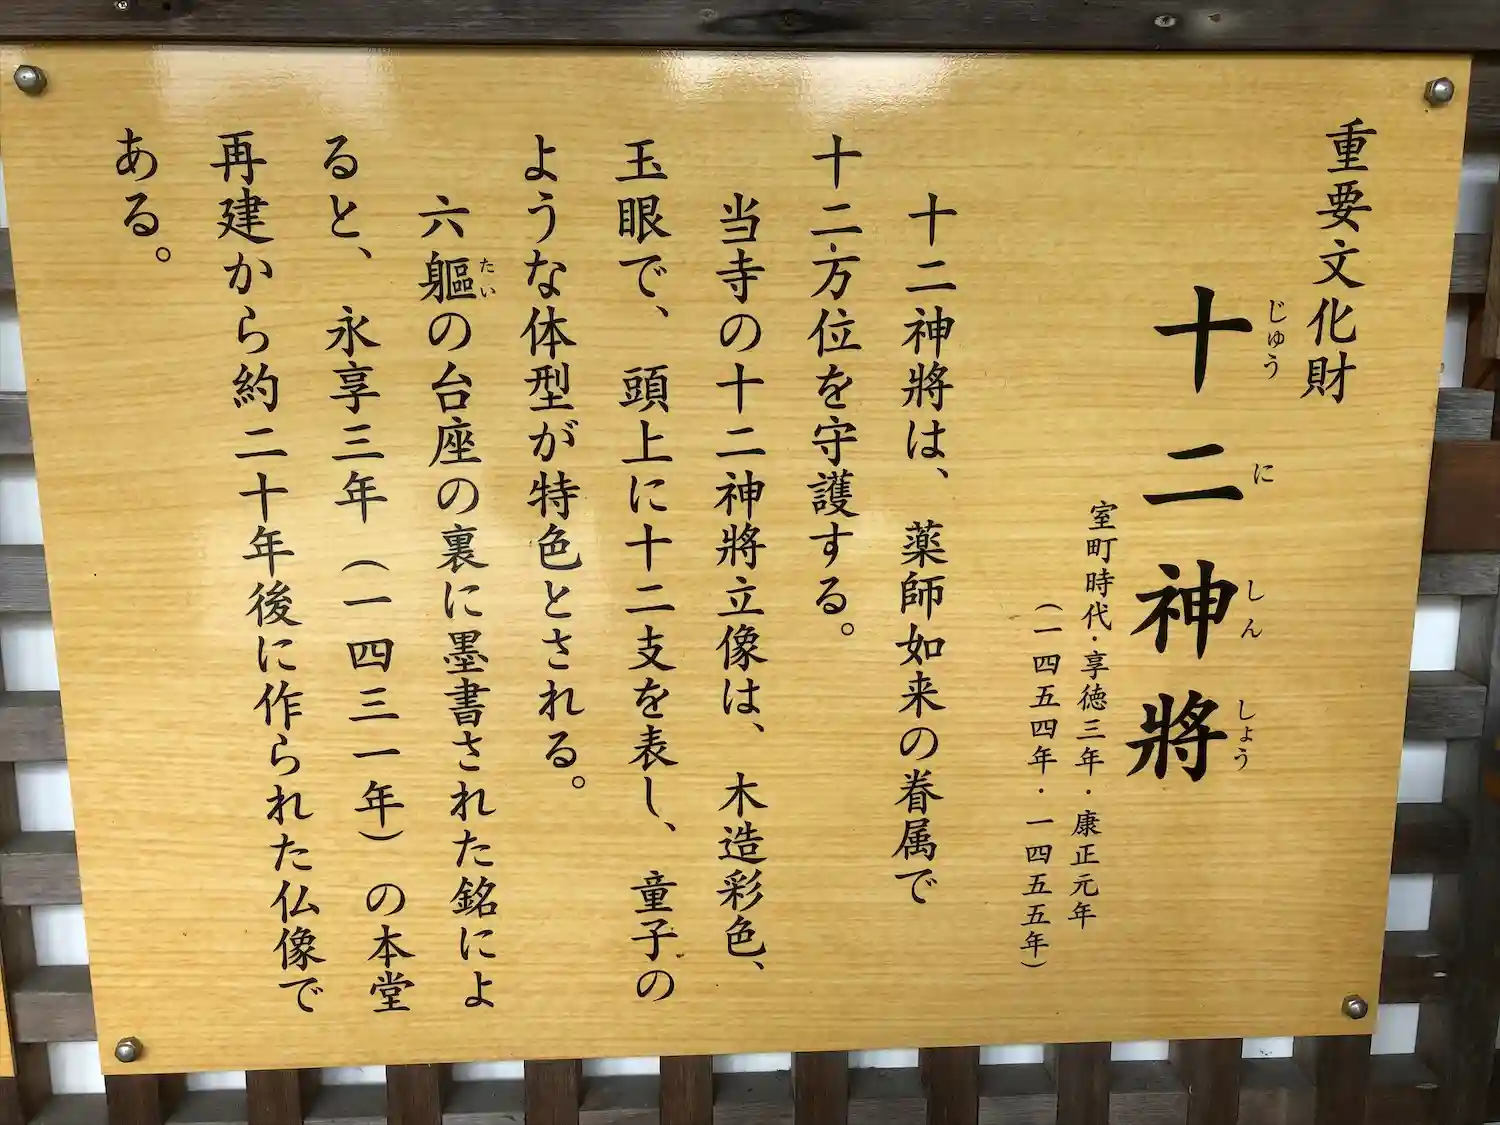 重要文化財
十二神將
じゅうにしんしょう
室町時代・享徳三年・康正元年
（一四五四年・一四五五年）
十二神將は、薬師如来の眷属で
十二方位を守護する。
当寺の十二神將立像は、木造彩色、
玉眼で、頭上に十二支を表し、童子の
ような体型が特色とされる。
六軀の台座の裏に墨書された銘によ
たい
ると、永享三年（一四三一年）の本堂
再建から約二十年後に作られた仏像で
ある。